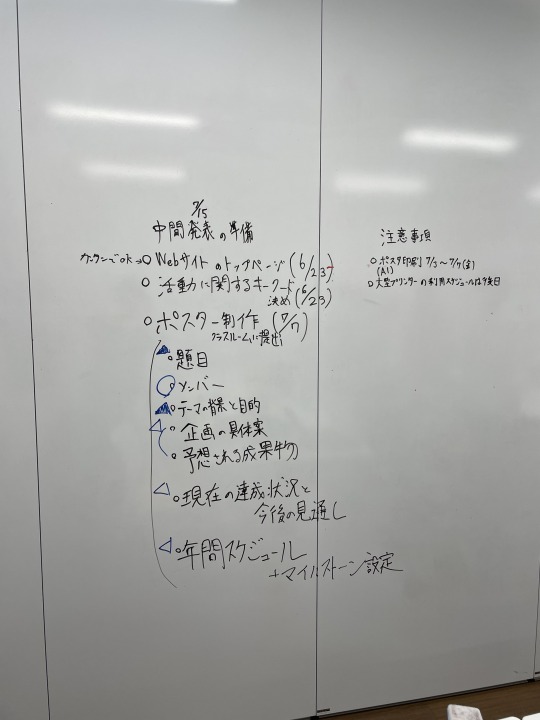 7/15
中間発表の準備
カンタンでOK→○ Webサイトのトップページ(6/23)
○ 活動に関するキーワード
決め(6/23)
○ ポスター制作(7/7)
クラスルームに提出
○題目
○メンバー
○テーマの背景と目的
○企画の具体案
○予想される成果物
○現在の達成状況と
今後の見通し
○年間スケジュール
+マイルストーン設定
注意事項
○ポスター印刷 7/3〜7/7(金)
(A1)
○大型プリンターの利用スケジュールは後日